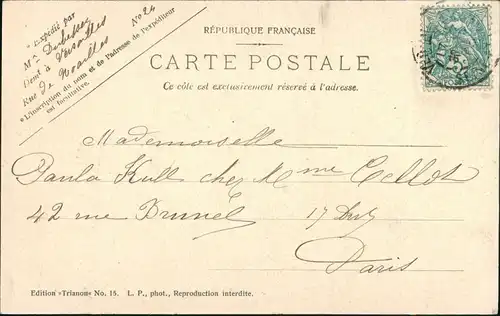 * Expédié par
Mme
Demt à Versailles
Rue de Noailles No 24
*L'inscription du nom et de l'adresse de l'expéditeur
est facultative.
RÉPUBLIQUE FRANÇAISE
CARTE POSTALE
Ce côté est exclusivement réservé à l'adresse.
Mademoiselle
Paula Kull chez Mme Cellot
42 rue Brunel 17
Paris
Edition «Trianon» No. 15. L. P., phot., Reproduction interdite.